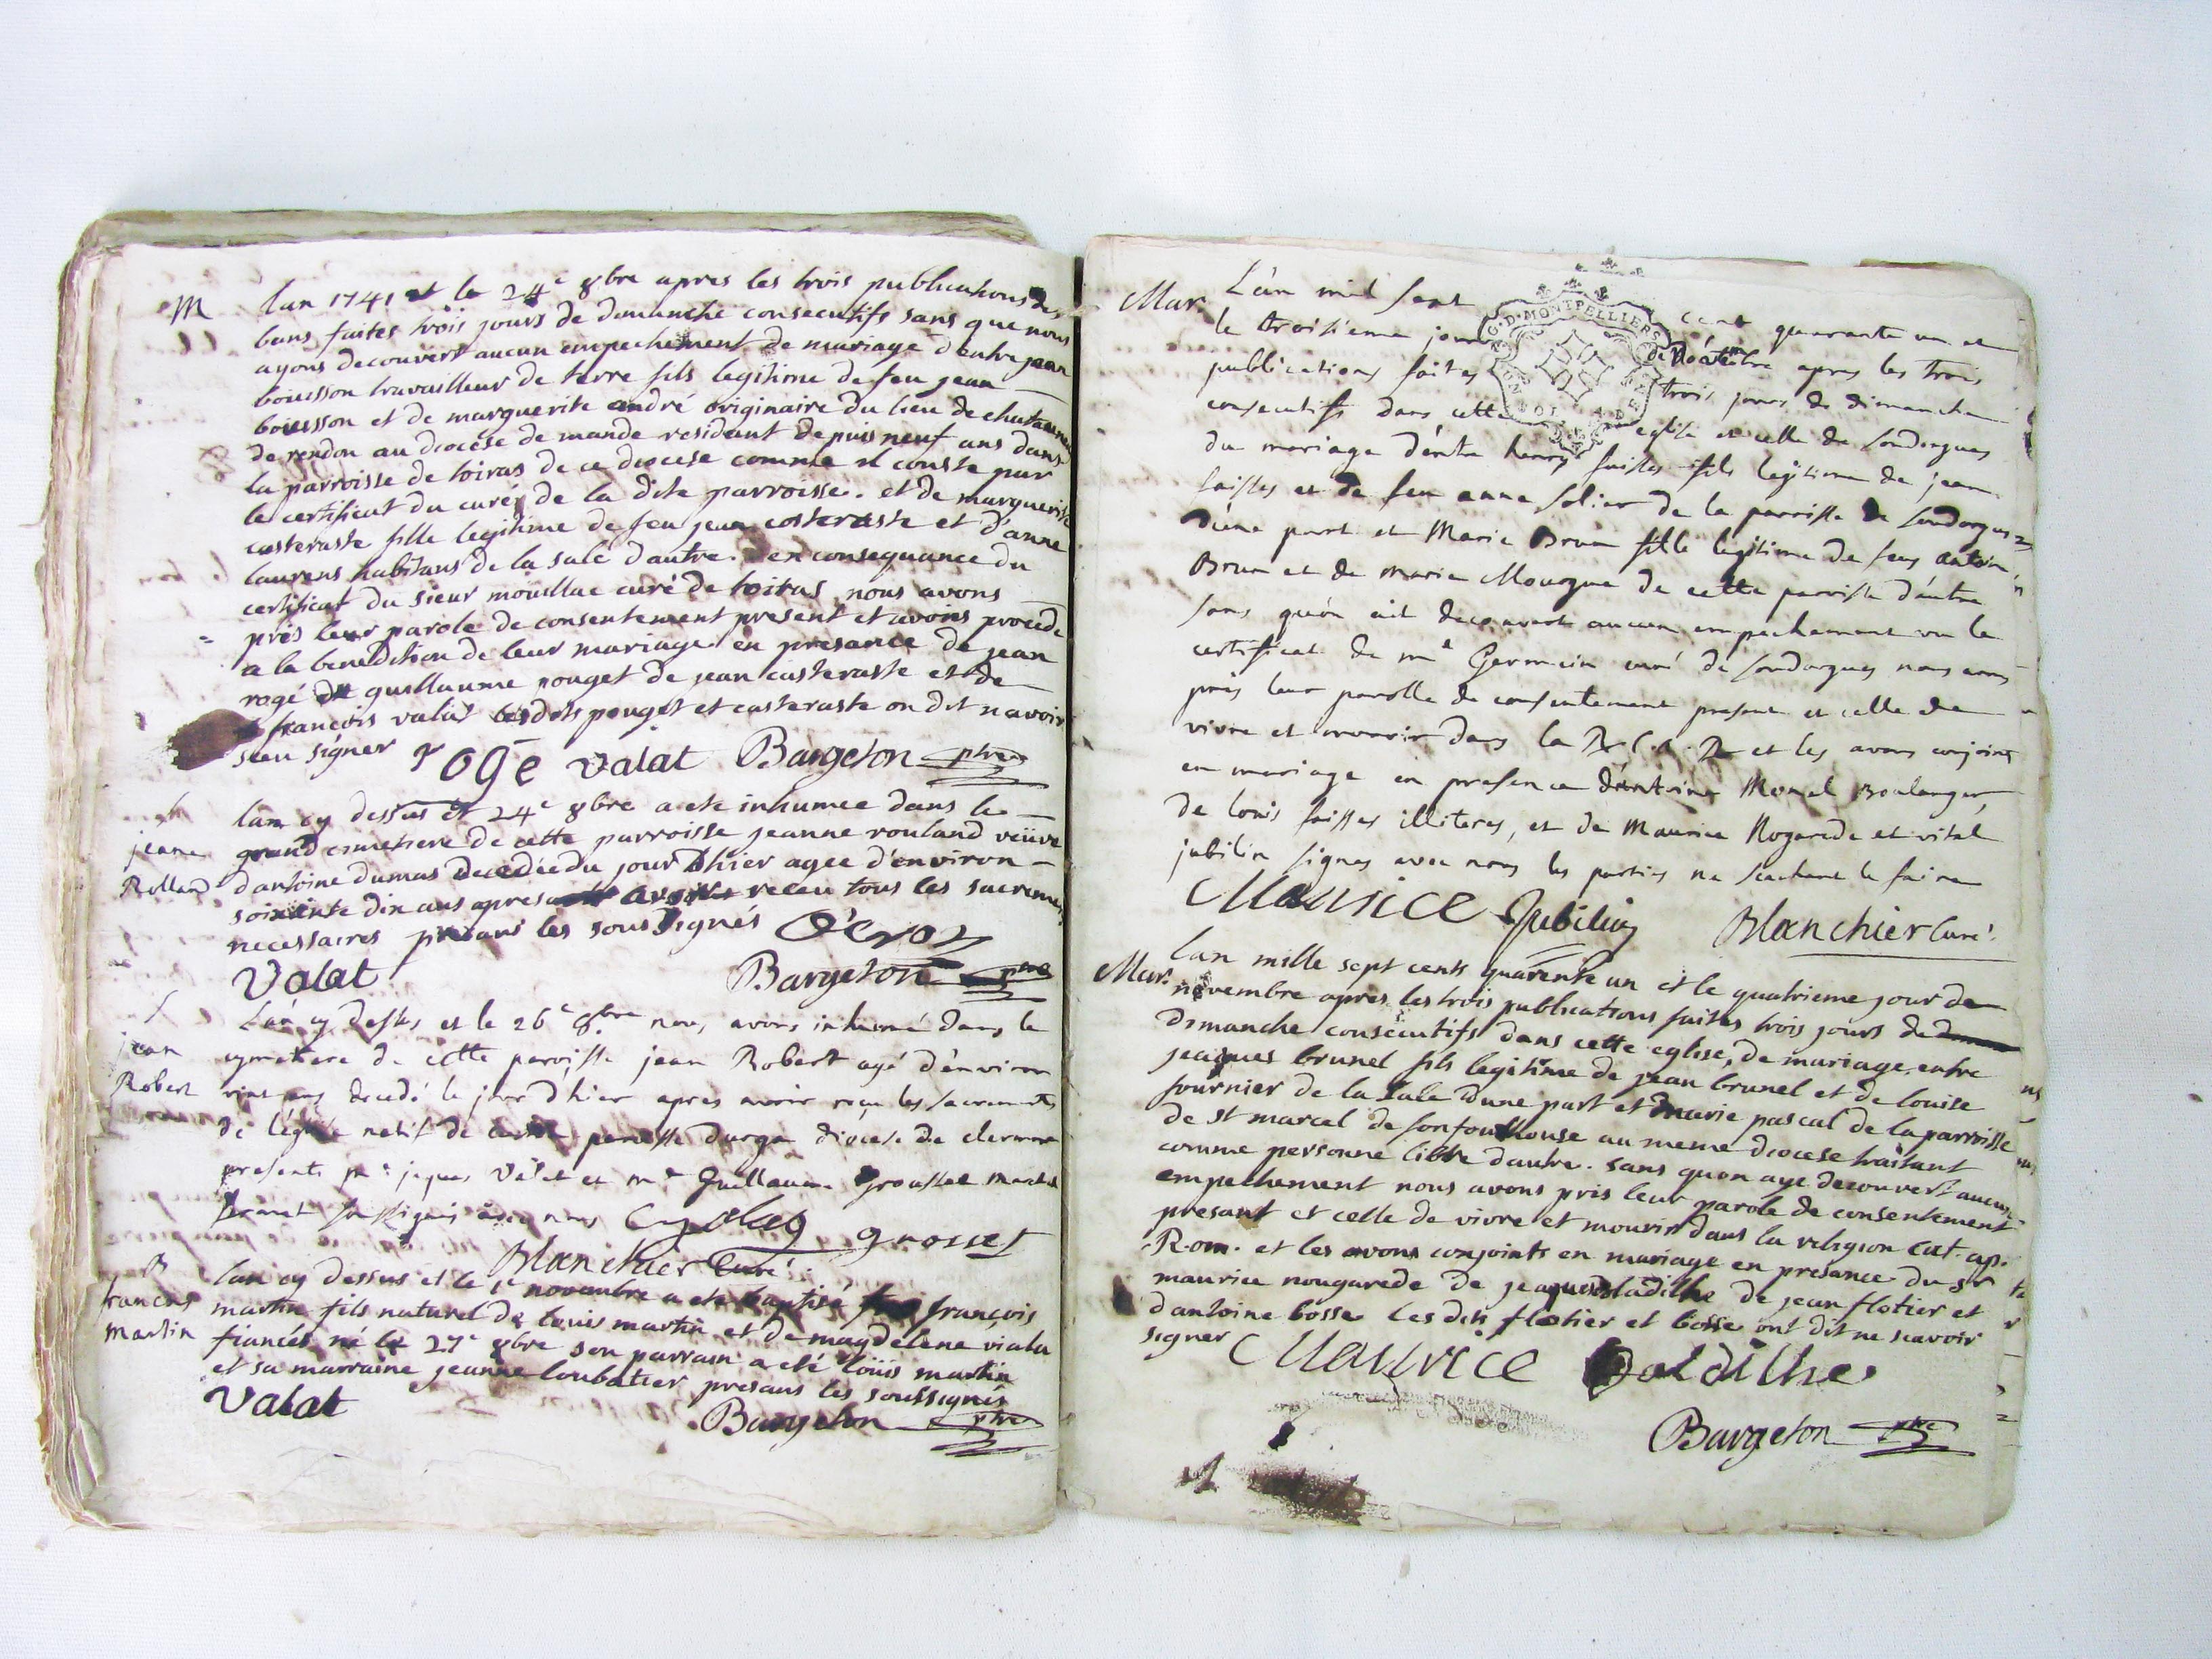 M
lan 1741 et le 24e 8bre apres les trois publications des
bans faites trois jours de dimanche consecutifs sans que nous
ayons decouvert aucun empechement de mariage d'entre jean
bouisson travailleur de terre fils legitime de feu jean
bouisson et de marguerite andré originaire du lieu de
de rendon au diocese de mande residant depuis neuf ans dans
la parroisse de toiras de ce diocese comme il conste par
le certificat du curé de la dite parroisse. et de marguerite
casteraste fille legitime de feu jean casteraste et d'anne
laurens habitans de la sale dautre. en consequance du
certificat du sieur mouillac curé de toiras nous avons
pris leur parole de consentement present et avons procede
a la benediction de leur mariage en presance de jean
rogé guillaume pouget de jean casteraste et de
françois valat lesdits pouget et casteraste on dit n avoir
sceu signer rogé valat Bargeton ptre
jeane
Rolland
lan cy dessus et 24e 8bre a ete inhumee dans le
grand cimetiere de cette parroisse jeanne rouland veüve
d'antoine dumas decedée du jour d'hier agee d'environ
soixante dix ans apres avoir receu tous les sacremens
necessaires presans les sous signés
Valat Bargeton ptre
jean
Robert
L'an cy desss et le 26e 8bre nous avons inhumé dans le
cymetiere de cette paroisse jean Robert agé d'environ
vint ans decedé le jour d'hier apres avoir reçu les sacrements
de l'eglise natif de paroisse diocese de clermon
presents mr jaques Valat et mr Guillaume Grousset
soussignés avec nous grosset
Blanchier Curé
B
francois
martin
lan cy dessus et le 1e novembre a ete baptisé françois
martin fils naturel de louis martin et de magdelene viala
fiancés né le 27e 8bre son parrain a eté loüis martin
et sa marraine jeanne loubatier presans les soussignés
Valat Bargeton ptre
G.D.MONTPELLIERS
Mar.
L'an mil sept cent quarante un et
le troisieme jour de Novembre apres les trois
publications faites trois jours de dimanche
consecutifs dans cette eglise et celle de Soudorgues
du mariage d'entre henry faisses fils legitime de jean
faisses et de feu anne solier de la parroisse de Soudorgues
d'une part et Marie Brun fille legitime de feu antoine
Brun et de marie Mourgue de cette paroisse d'autre
sans qu'on ait decouvert aucun empechement vu le
certificat de mr Germain curé de soudorgues nous avons
pris leur parolle de consentement present et celle de
vivre et mourir dans la R. C. A. R et les avons conjoint
en mariage en presence d'antoine Boulanger,
de louis faisses illiteres, et de Maurice Nogarede et vital
jubilin signes avec nous les parties ne sachant le faire
Maurice Jubilin Blanchier Curé
Mar.
lan mille sept cents quarente un et le quatrieme jour de
novembre apres les trois publications faites trois jours de
dimanche consecutifs dans cette eglise, de mariage, entre
jeaques brunel fils legitime de jean brunel et de louise
fournier de la sale d'une part et marie pascal de la parroisse
de st marcel de fonfouillouse au meme diocese traitant
comme personne libre dautre. sans quon aye decouvert aucun
empechement nous avons pris leur parole de consentement
presant et celle de vivre et mourir dans la religion cat. ap.
Rom. et les avons conjoints en mariage en presance du sr
maurice nougarede de jeaques de jean flotier et
d'antoine bosse les dits flotier et bosse ont dit ne scavoir
signer Maurice
Bargeton ptre